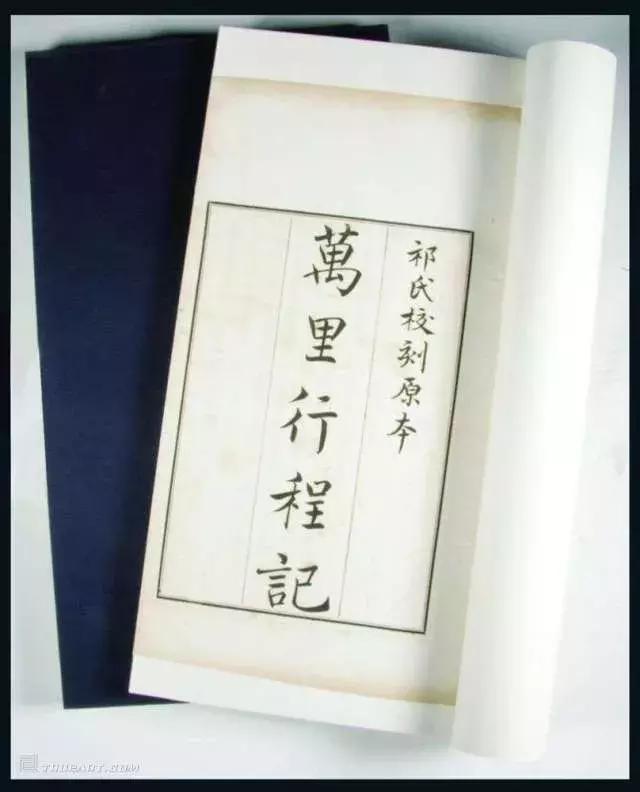 祁氏校刻原本
萬里行程記